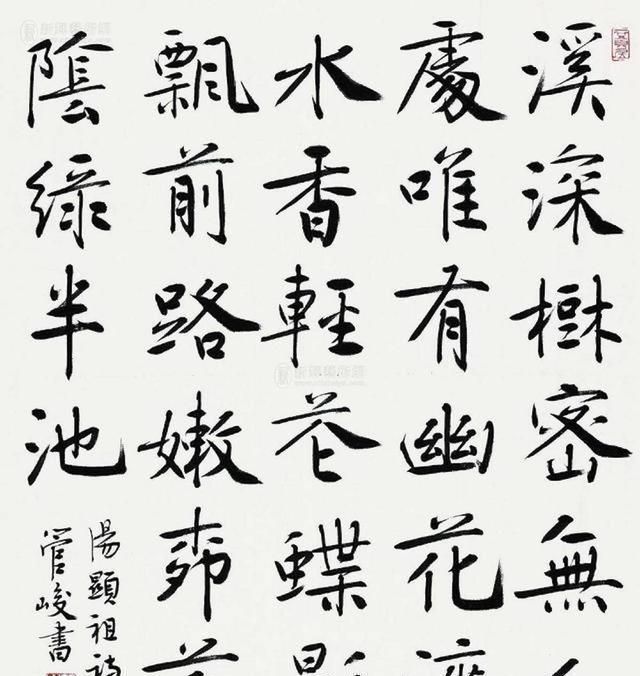 溪深樹密無
處唯有幽花
水香輕花蝶
飄前路嫩柳
陰綠半池
湯顯祖詩
管峻書